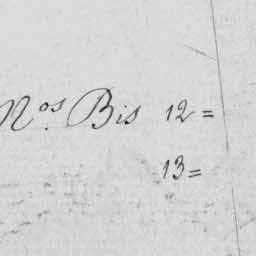 Nos. Bis 12=
13=